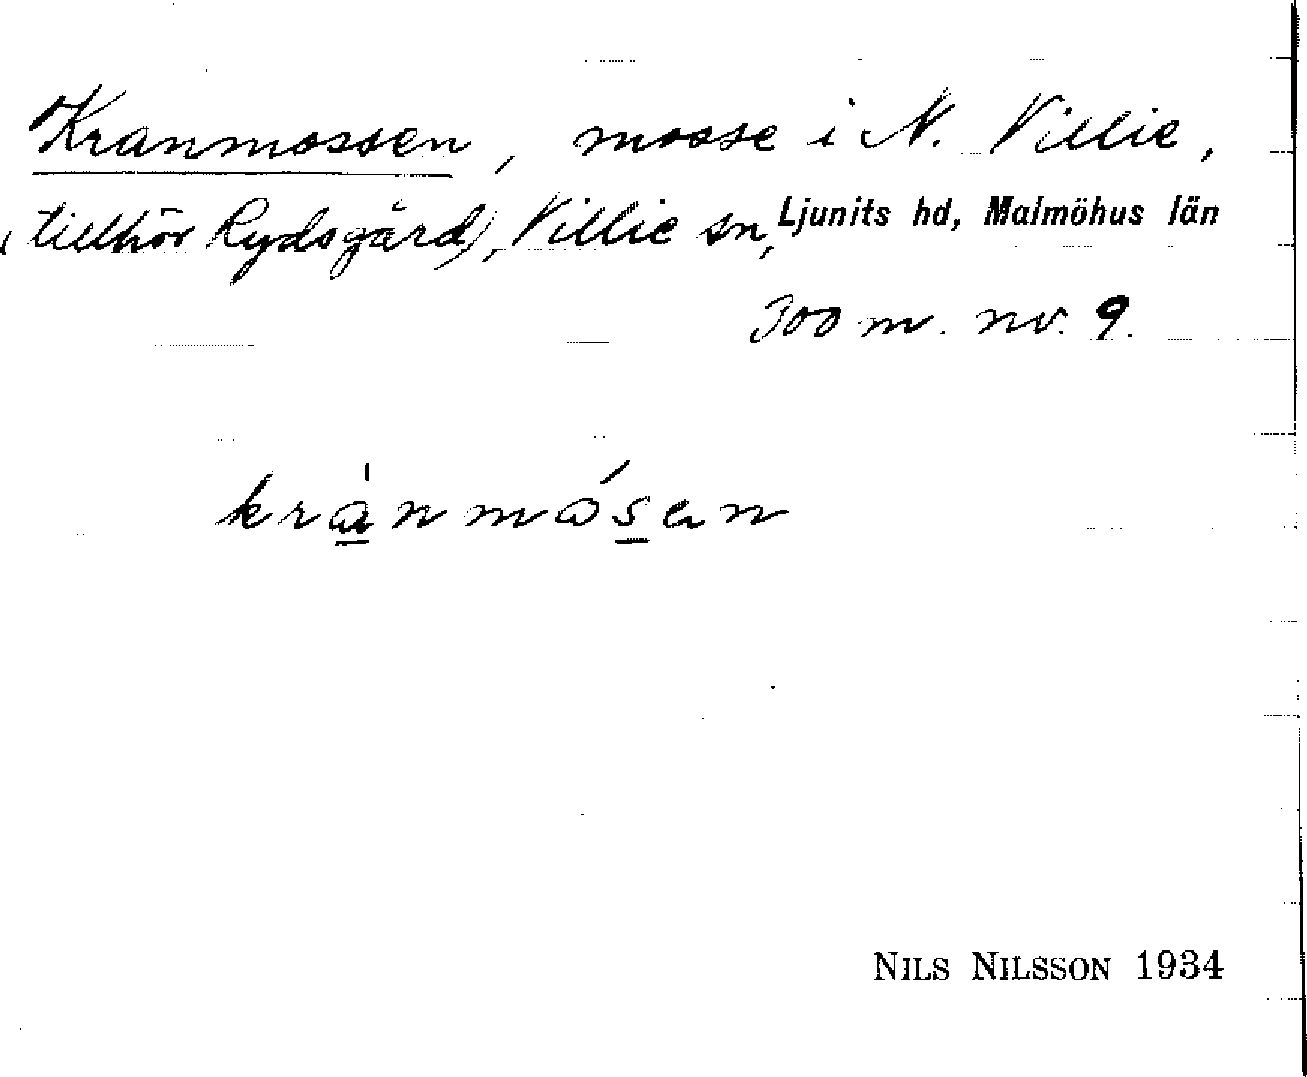 Kranmossen, mosse i N. Villie,
(tillhör Rydsgård), Villie sn, Ljunits hd, Malmöhus län
300 m. nv. 9.
krànmósen
NILS NILSSON 1934